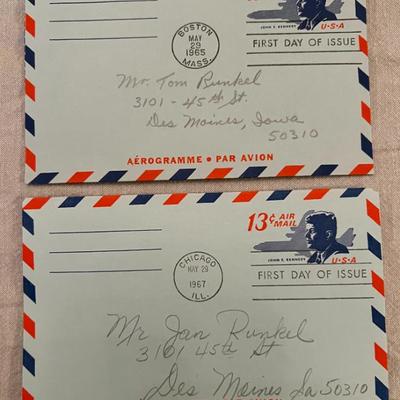 BOSTON
MAY
29
1965
MASS.
JOHN F. KENNEDY
U·S·A
FIRST DAY OF ISSUE
Mr. Tom Runkel
3101 - 45th St.
Des Moines, Iowa
50310
AÉROGRAMME • PAR AVION
13¢ AIR
MAIL
JOHN F. KENNEDY
U·S·A
CHICAGO
MAY 29
1967
ILL.
FIRST DAY OF ISSUE
Mr Jan Runkel
3101 45th St
Des Moines Ia 50310